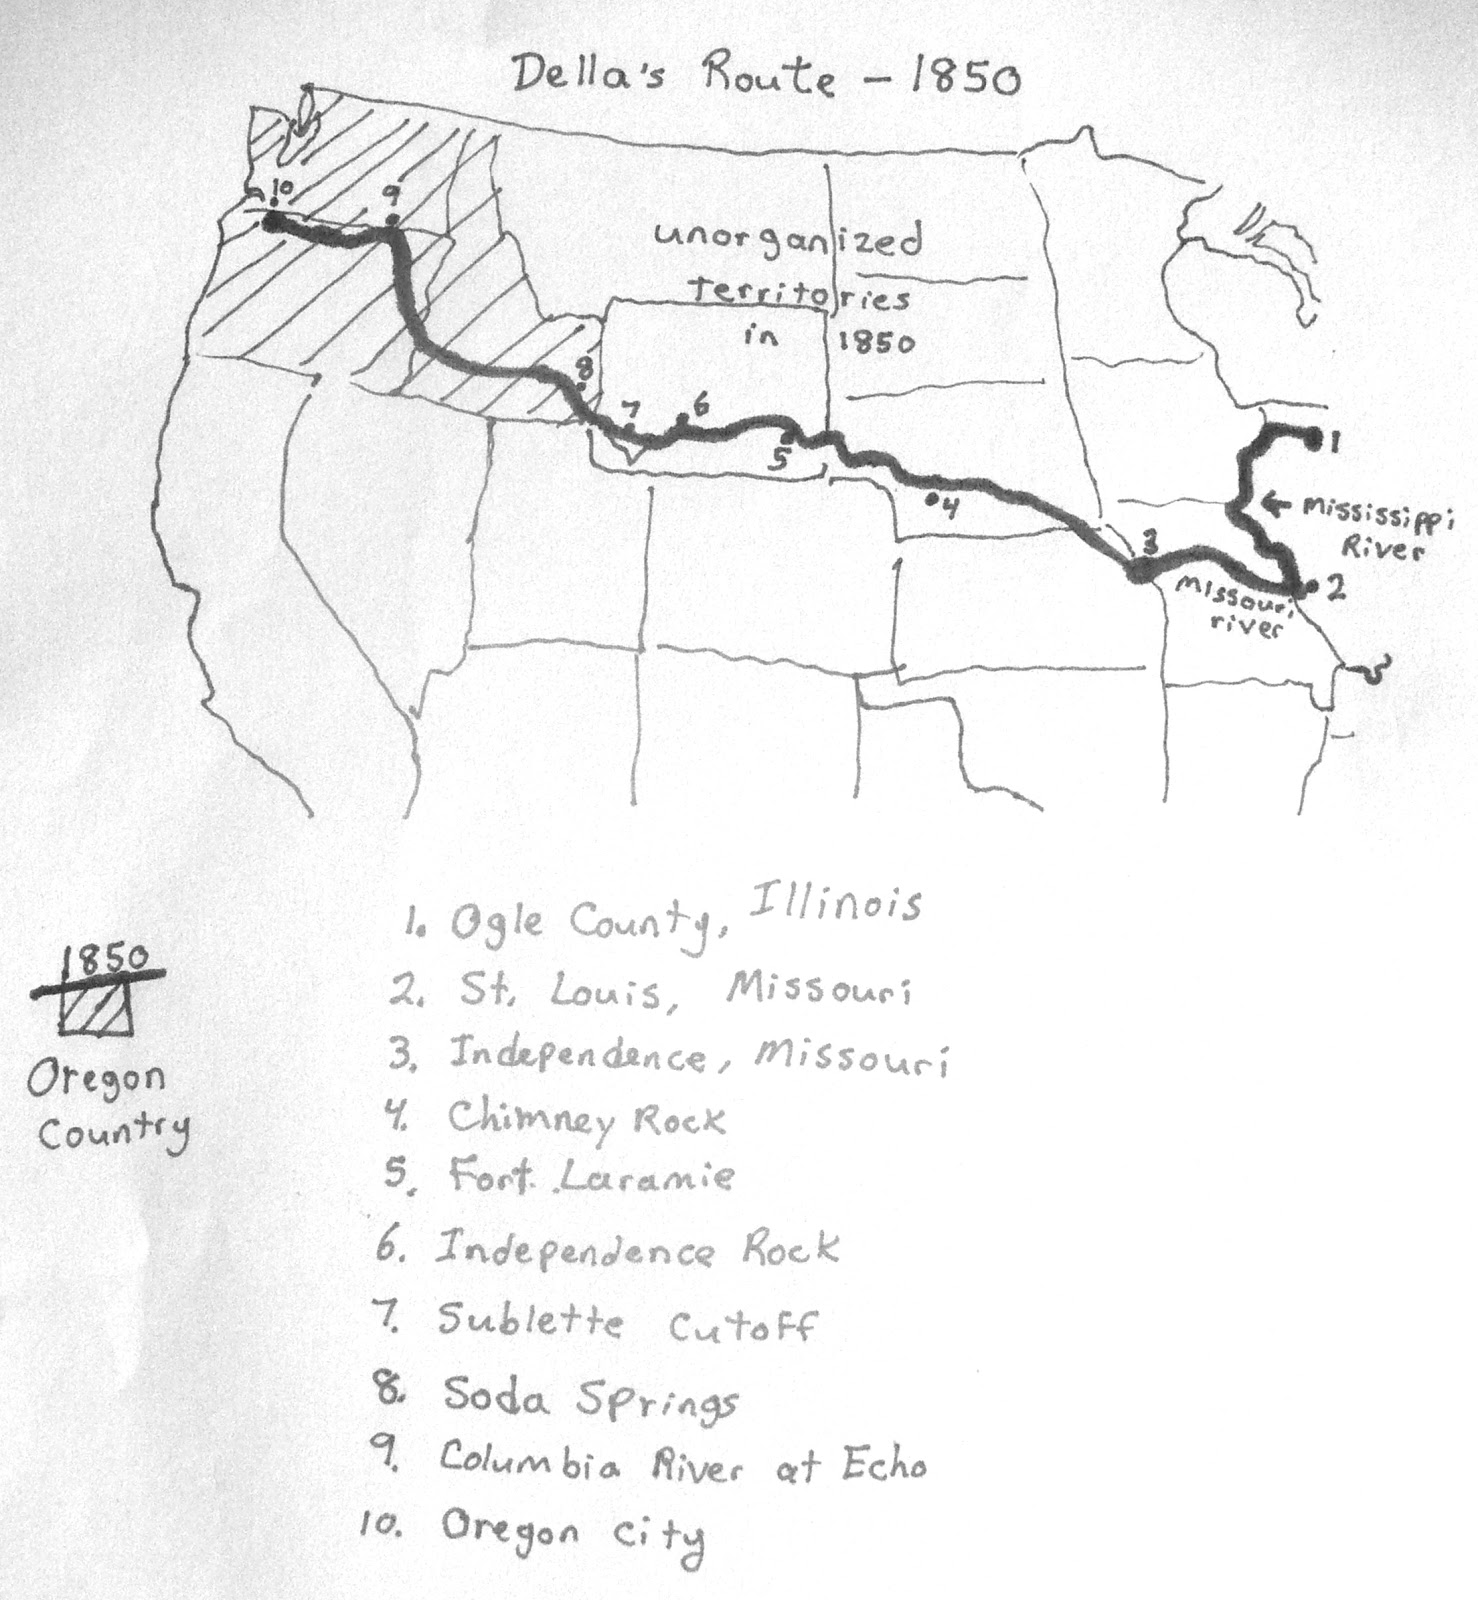 Della's Route - 1850
10
9
unorganized
territories
in 1850
8
7
6
5
4
3
1
← Mississippi
River
2
Missouri
river
1. Ogle County, Illinois
2. St. Louis, Missouri
3. Independence, Missouri
4. Chimney Rock
5. Fort Laramie
6. Independence Rock
7. Sublette Cutoff
8. Soda Springs
9. Columbia River at Echo
10. Oregon City
1850
Oregon
Country